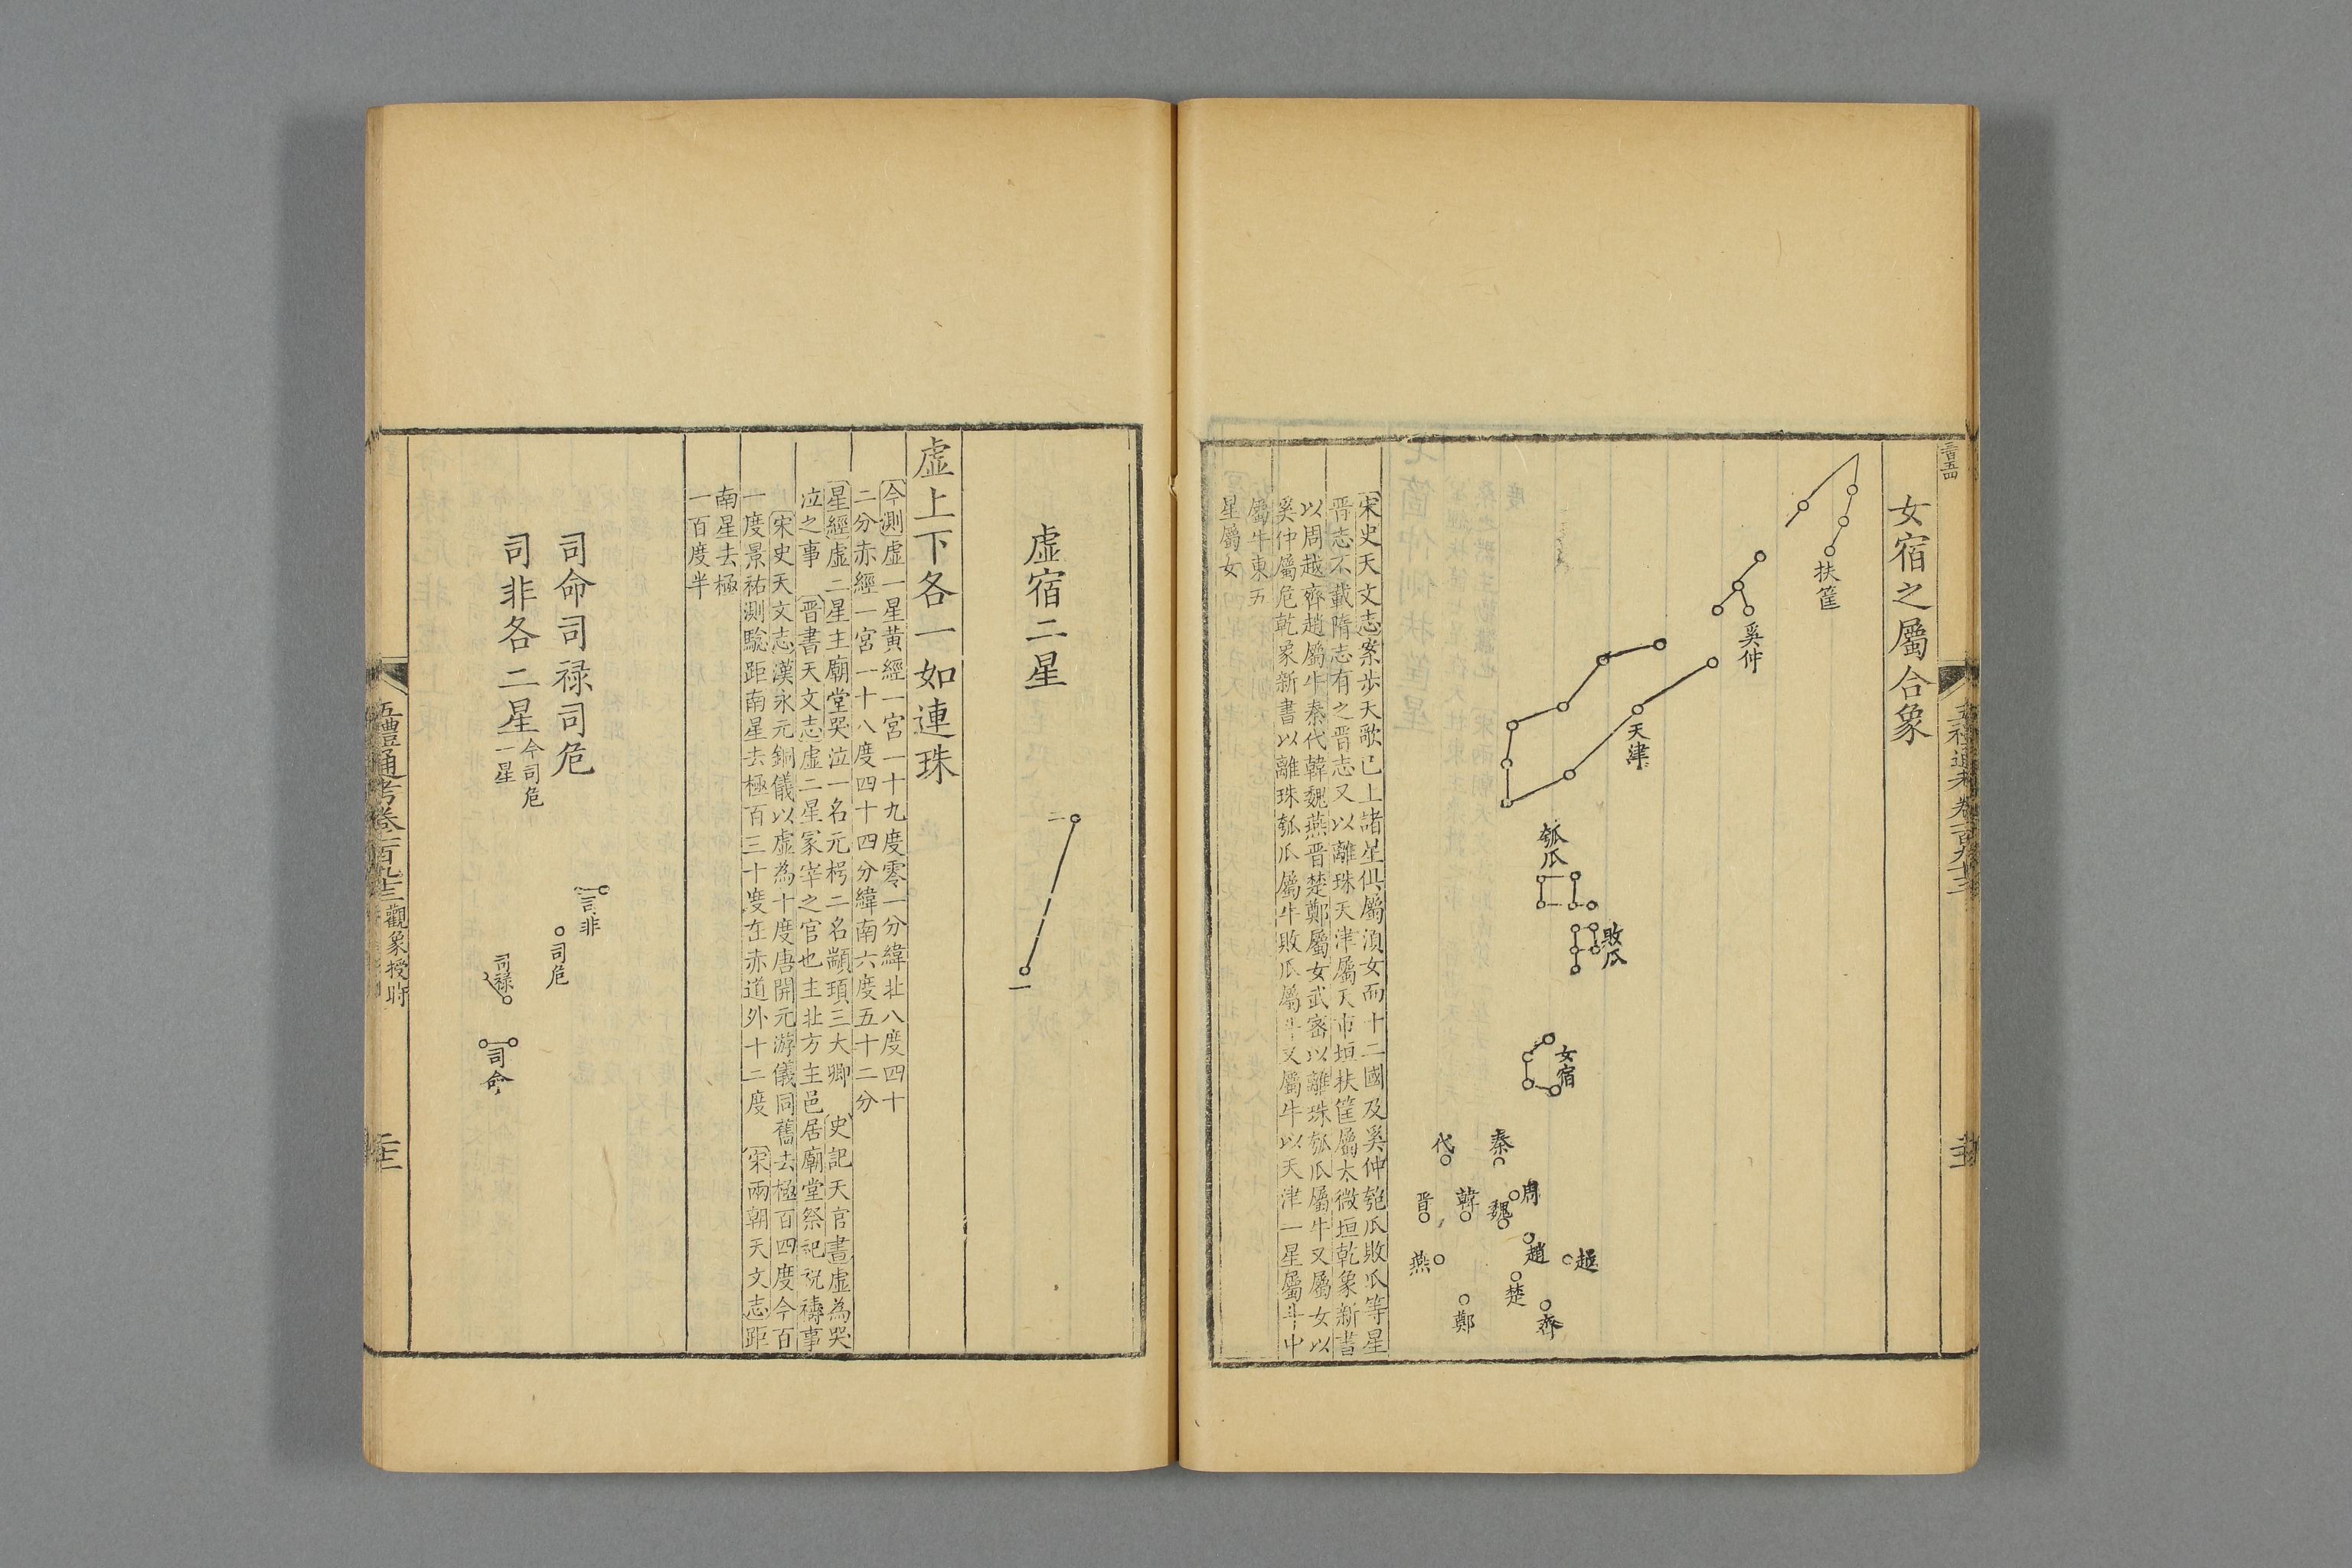 女宿之屬合象
扶筐
奚仲
天津
瓠瓜
敗瓜
女宿
秦
代
周
魏
韓
晋
趙
越
燕
楚
齊
鄭
宋史天文志案步天歌已上諸星俱屬須女而十二國及奚仲匏瓜敗瓜等星
晋志不載隋志有之晋志又以離珠天津屬天市垣扶筐屬太微垣乾象新書
以周越齊趙屬牛秦代韓魏燕晋楚鄭屬女武密以離珠瓠瓜屬牛又屬女以
奚仲屬危乾象新書以離珠瓠瓜屬牛敗瓜屬斗又屬牛以天津一星屬斗中
屬牛東五
星屬女
虛宿二星
二
一
虛上下各一如連珠
今測虛一星黃經一宮一十九度零一分緯北八度四十
二分赤經一宮一十八度四十四分緯南六度五十二分
星經虛二星主廟堂哭泣一名元枵二名顓頊三大卿 史記天官書虛為哭
泣之事 晋書天文志虛二星冢宰之官也主北方主邑居廟堂祭祀祝禱事
宋史天文志漢永元銅儀以虛為十度唐開元游儀同舊去極百四度今百
一度景祐測驗距南星去極百三十度在赤道外十二度 宋兩朝天文志距
南星去極
一百度半
司命司禄司危
司非各二星今司危
一星
司非
司危
司禄
司命
五禮通考卷一百九十三 觀象授時